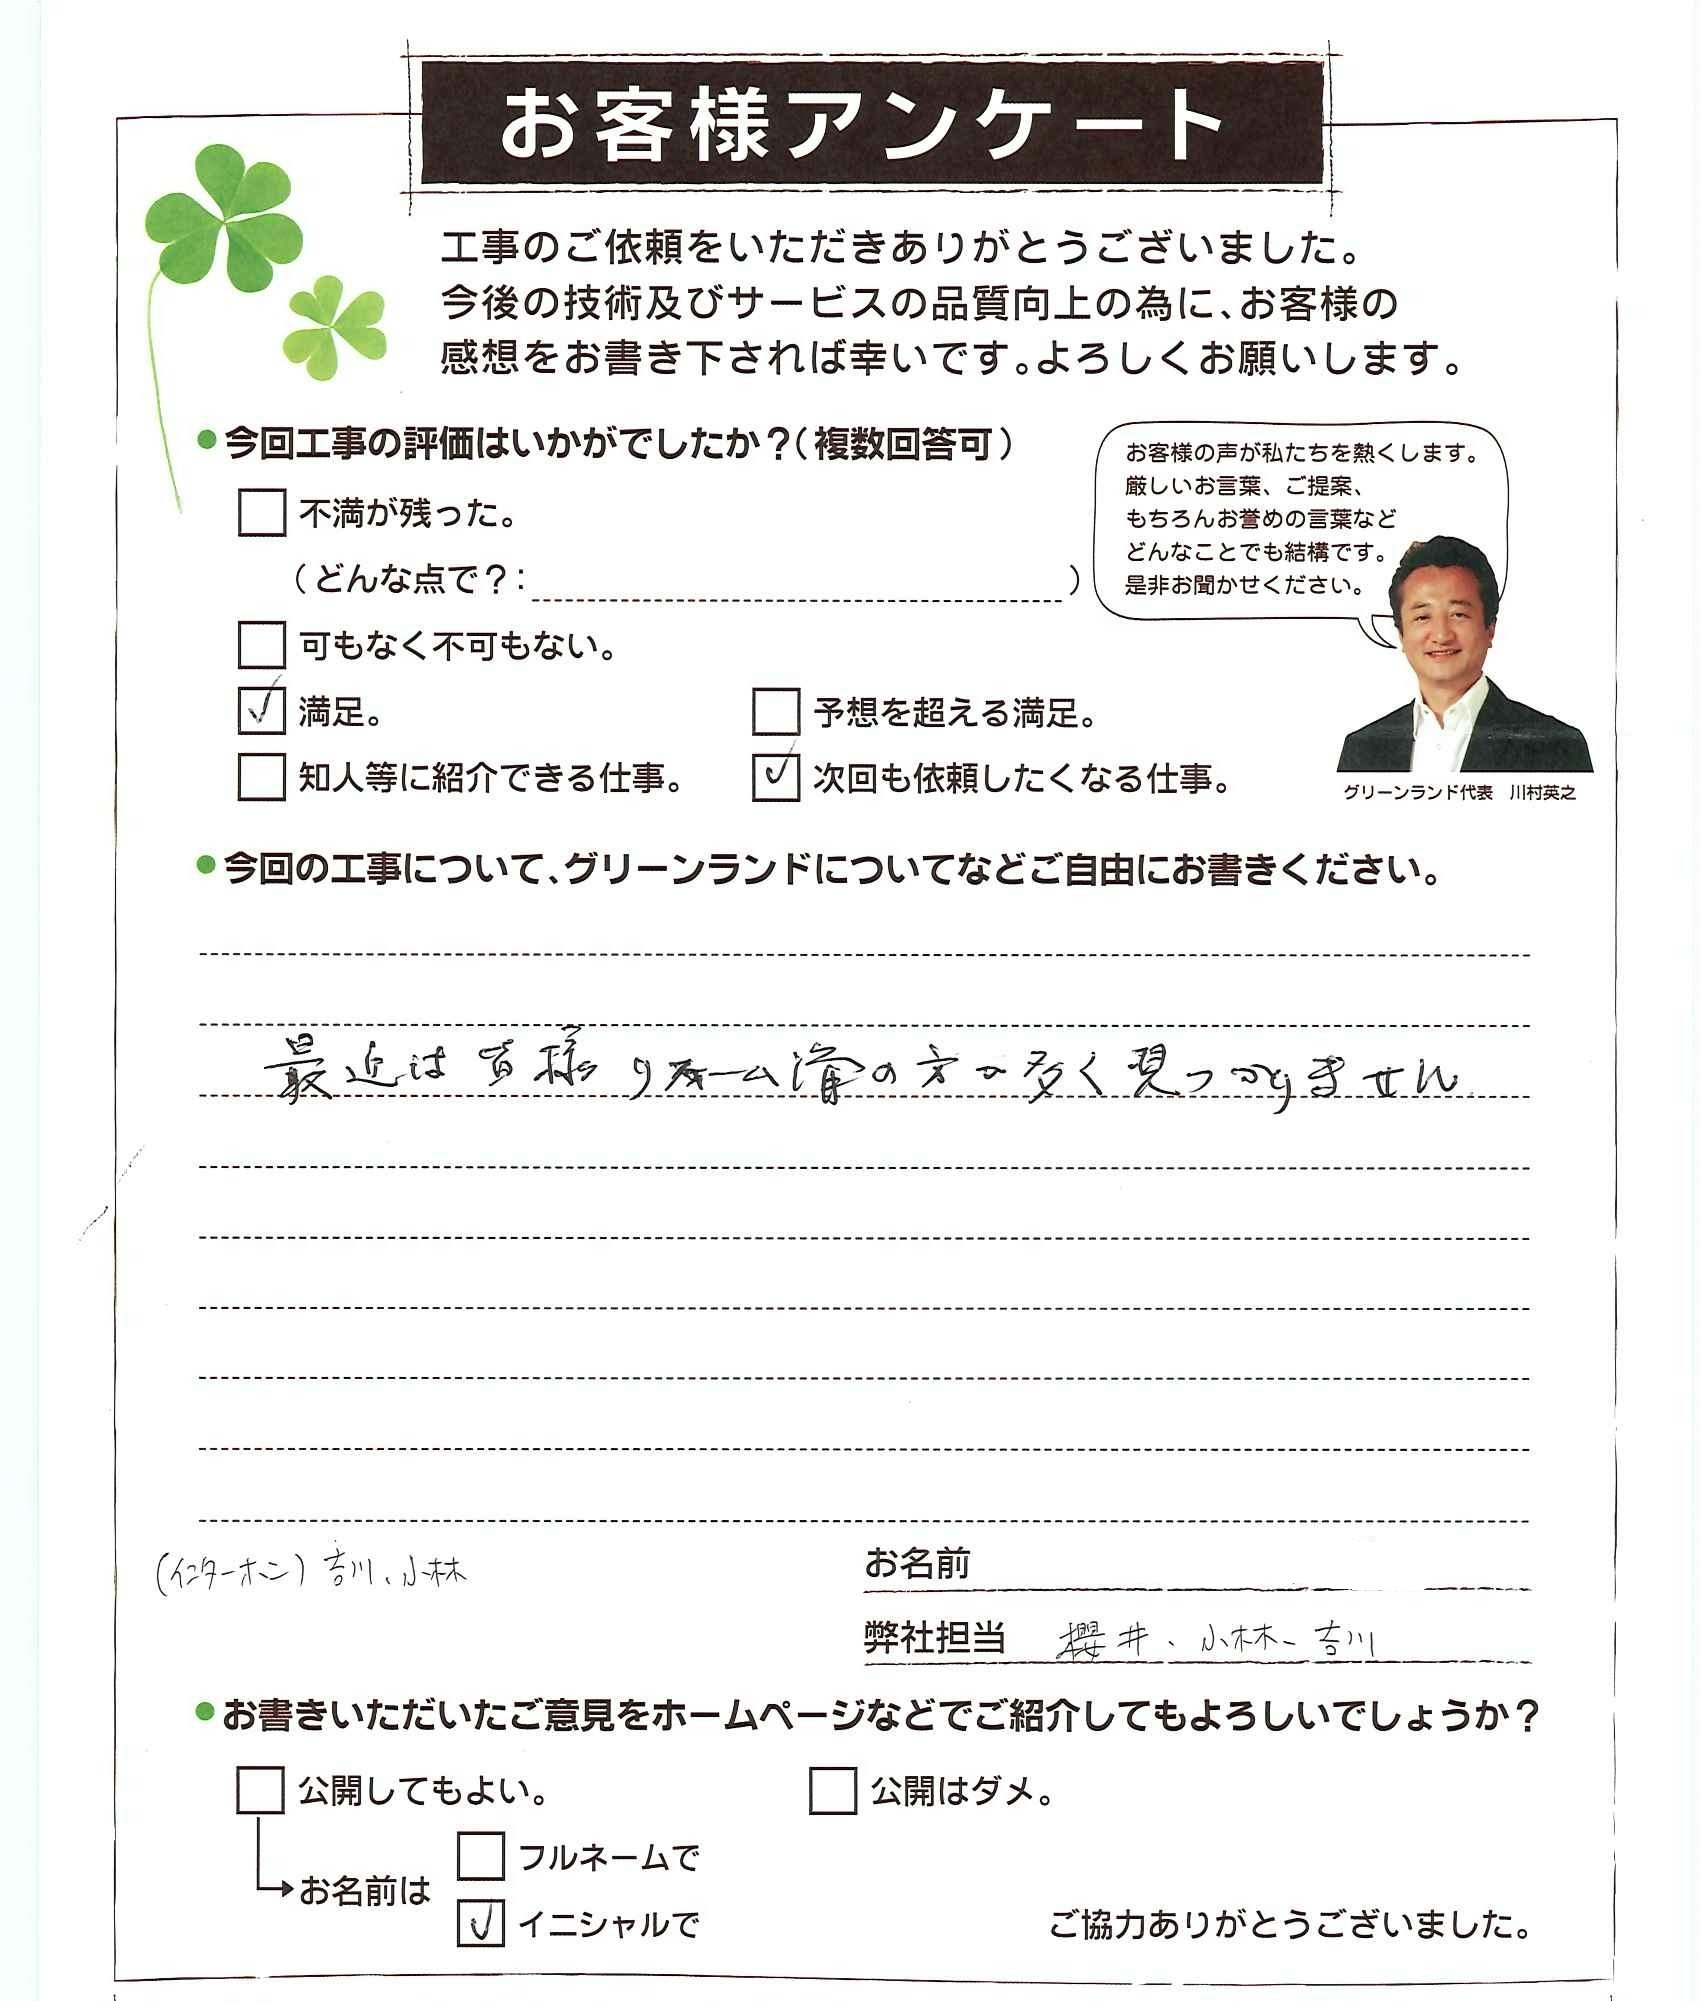 お客様アンケート
工事のご依頼をいただきありがとうございました。
今後の技術及びサービスの品質向上の為に、お客様の
感想をお書き下されば幸いです。よろしくお願いします。
●今回工事の評価はいかがでしたか？(複数回答可)
不満が残った。
(どんな点で？: )
可もなく不可もない。
満足。
予想を超える満足。
知人等に紹介できる仕事。
次回も依頼したくなる仕事。
お客様の声が私たちを熱くします。
厳しいお言葉、ご提案、
もちろんお誉めの言葉など
どんなことでも結構です。
是非お聞かせください。
グリーンランド代表 川村英之
●今回の工事について、グリーンランドについてなどご自由にお書きください。
最近は皆様リフォーム済の方が多く見つかりません
(インターホン) 吉川、小林
お名前
弊社担当 櫻井、小林、吉川
●お書きいただいたご意見をホームページなどでご紹介してもよろしいでしょうか？
公開してもよい。
公開はダメ。
お名前は
フルネームで
イニシャルで
ご協力ありがとうございました。